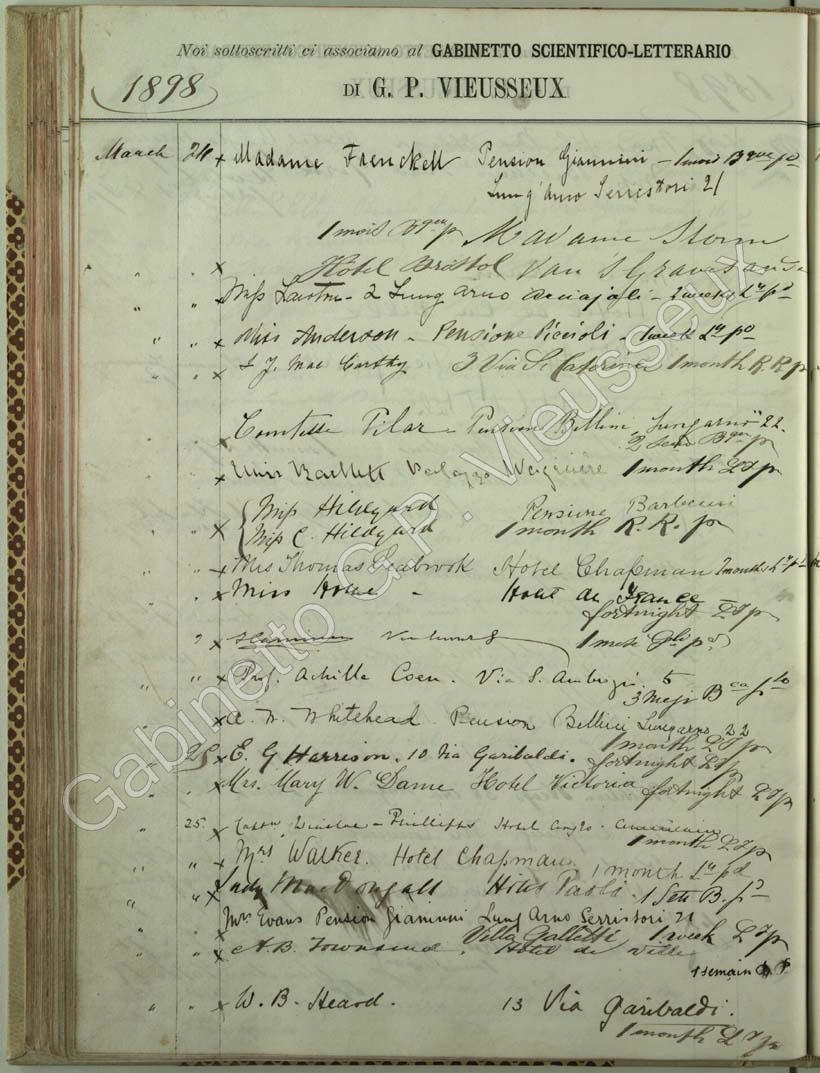 Noi sottoscritti ci associamo al GABINETTO SCIENTIFICO-LETTERARIO
1898
DI G. P. VIEUSSEUX
March 24 x Madame Frenckell Pension Giannini - 1 mois
Lung'Arno Serristori 21
1 mois Madame Storm
" " x Hôtel Bristol van 's Gravesande
" " Miss 2 Lung'arno Acciajoli - 2 weeks
" " x Miss Anderson - Pensione Piccioli - 1 week
" " x J. J. Mac Carthy 3 Via S. Caterina 1 month R. R. p
" " x Comtesse Pilar - Pension Bellini, Lungarno 22.
" " x Miss Bartlett Palazzo 1 month L T p
" " x Miss Hildyard Pensione Barbensi
Miss C. Hildyard 1 month R. R. p
" " x Mrs Thomas Peabrook Hotel Chapman 2 months
" " x Miss Howe - Hotel de France
fortnight L T p
" x
" " x Prof. Achille Coen. Via S. Ambrogio 5
3 Mesi
x A. N. Whitehead Pension Bellini Lungarno 22
1 month L T p
" 25 x E. G Harrison. 10 Via Garibaldi. fortnight L T p
" " x Mrs. Mary W. Dame Hotel Victoria fortnight L T p
" 25 x Hotel Anglo-Americain
1 month L T p
" " x Mrs Walker. Hotel Chapman 1 month
" " x Lady MacDougall Hotel Paoli - 1 Sett.
" " Mrs Evans Pension Giannini Lung Arno Serristori 21
Villa Galletti 1 week L T p
" " x A. B. Townsend. Hotel de Ville
1 semain
" " x W. B. Heard. 13 Via Garibaldi.
1 month L T p
Gabinetto G.P. Vieusseux